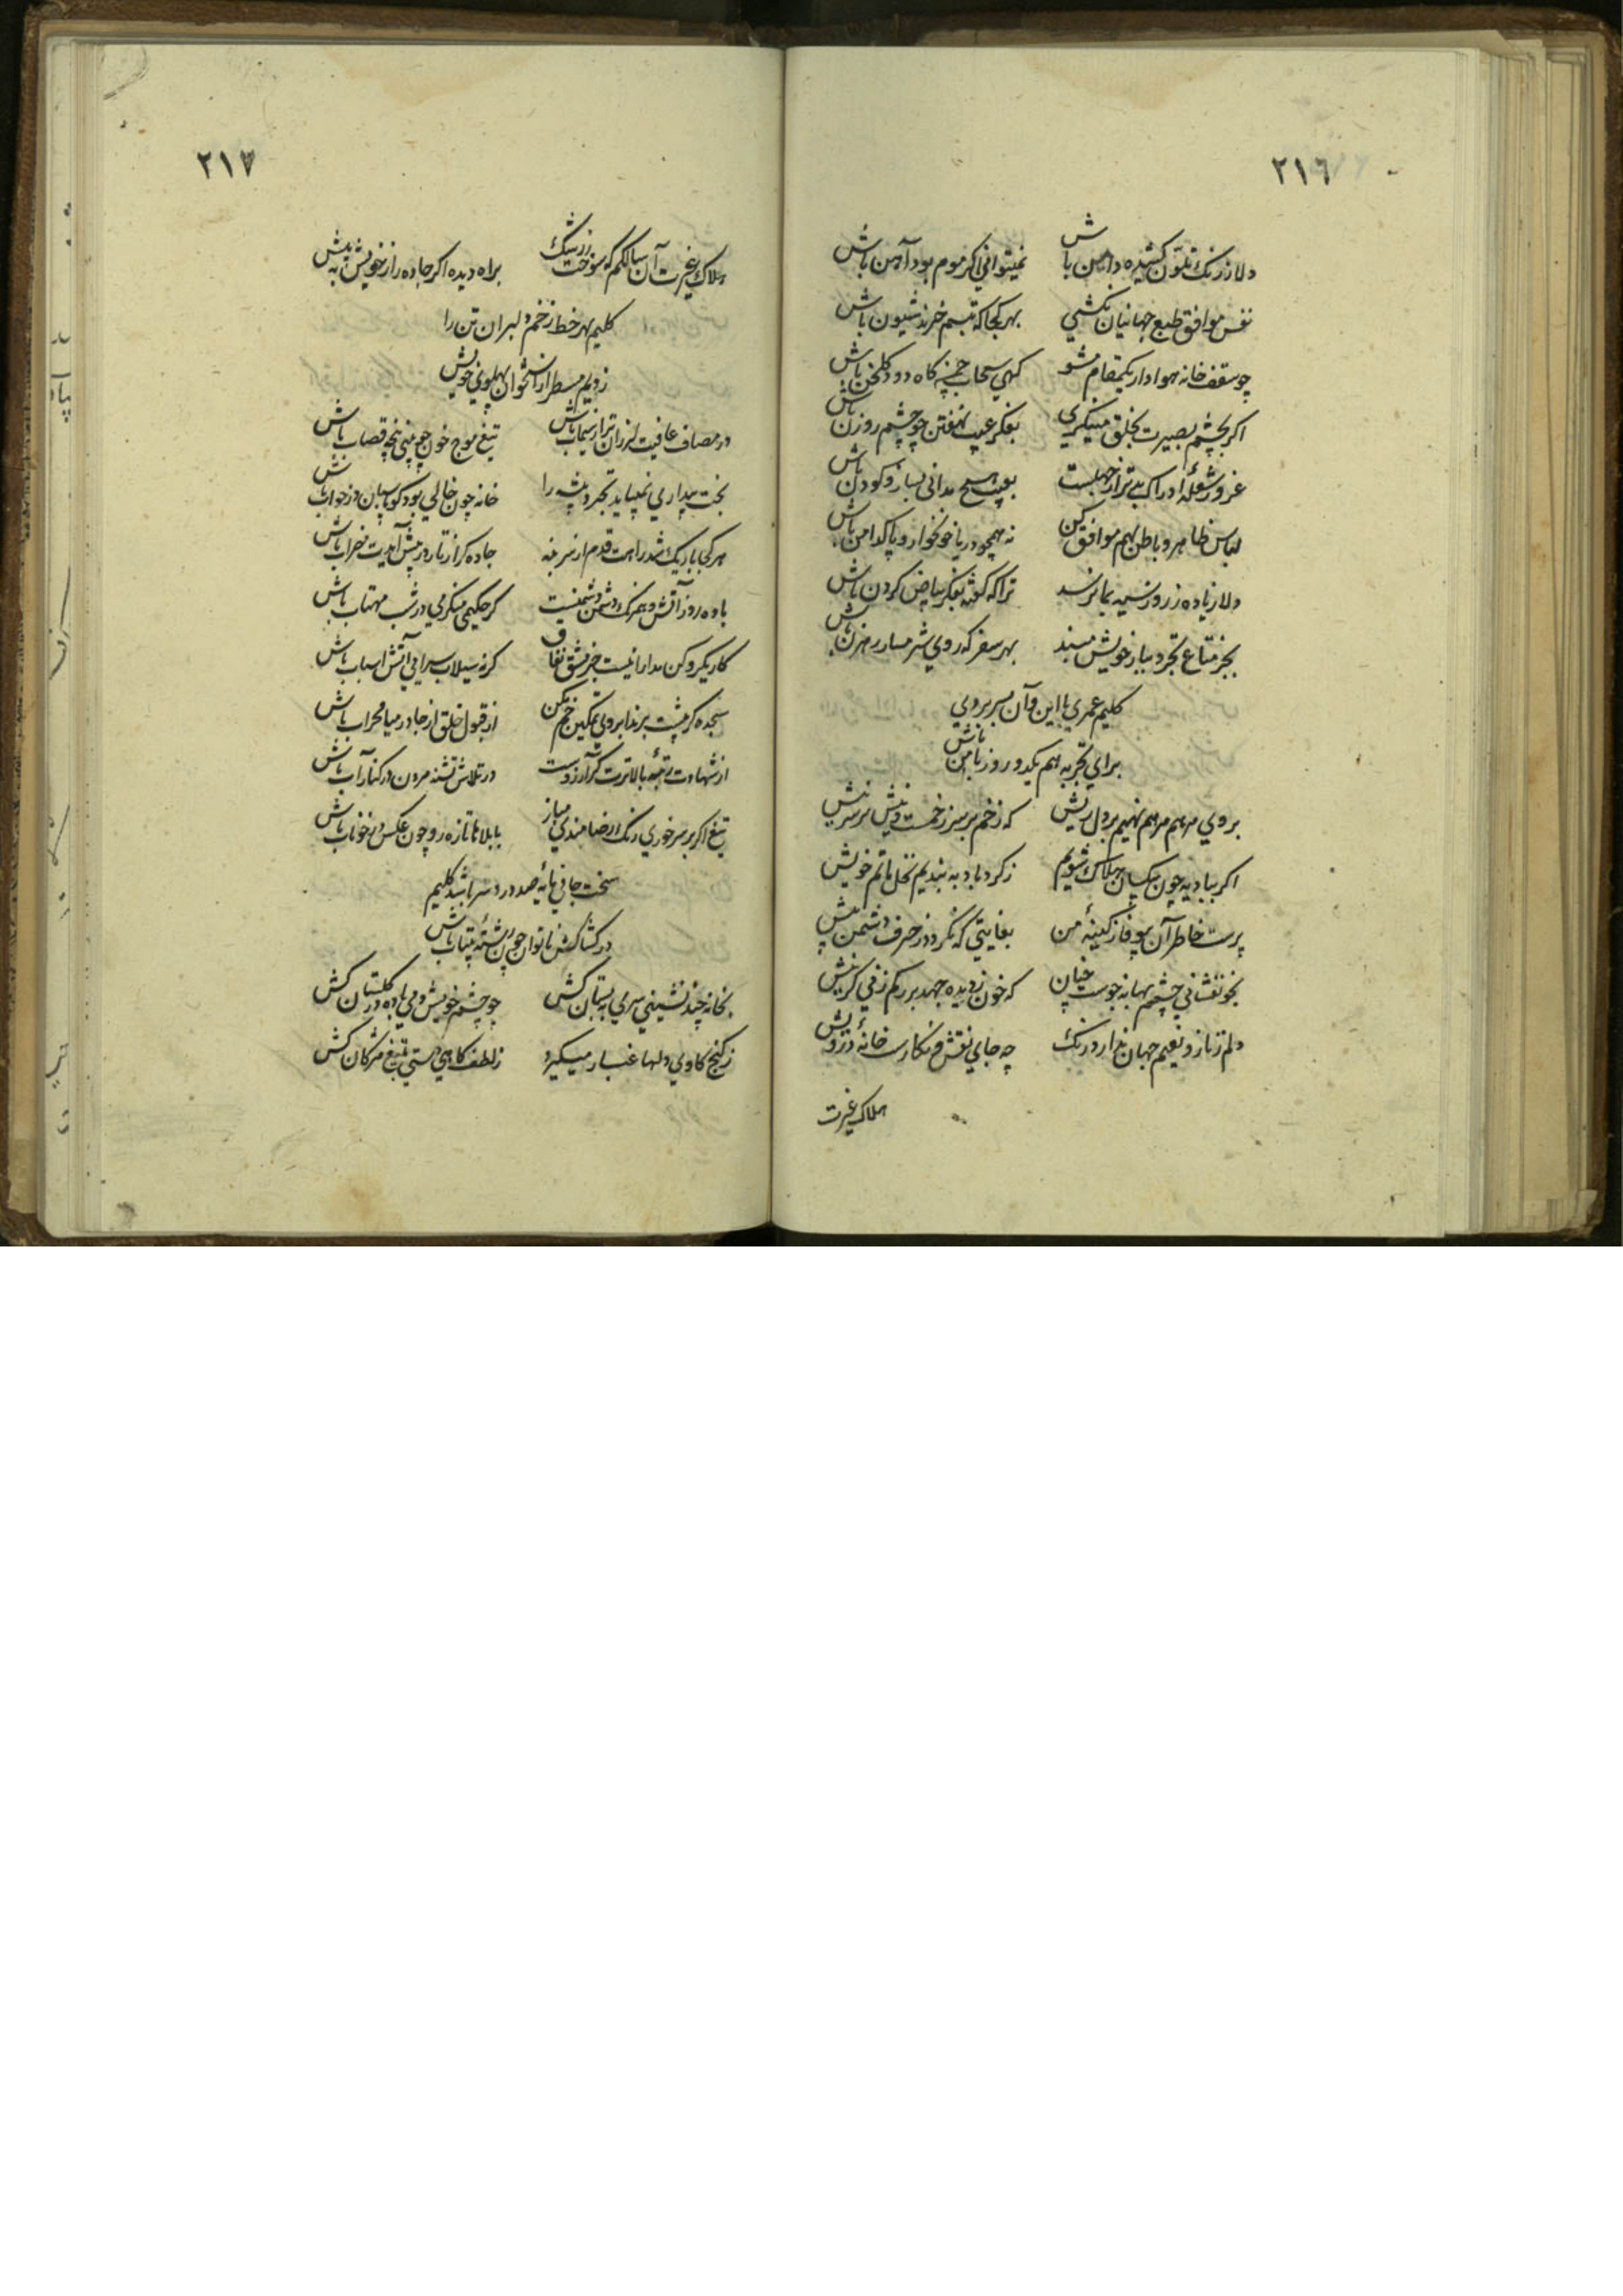 ٢١٦
دلا ز رنک تلون کشیده دامن باش نمیتوانی اکر موم بود آهن باش
نفس موافق طبع جهانیان نکشی بهر کجا که تبسم خرند شیون باش
چو سقف خانه هوادار یکمقام مشو کهی سحاب چمن کاه دود کلخن باش
اکر بچشم بصیرت بخلق مینکری بفکر عیب نهفتن چو چشم روزن باش
غرور شعلهٔ ادراک بدتر از جهلست بعیب هیچ مدانی بساز و کودن باش
لباس ظاهر و باطن بهم موافق کن نه همچو دریا خونخوار و پاکدامن باش
دلا زیاده ز روز سیه بما نرسد ترا که کفته بفکر بیاض کردن باش
بجز متاع تجرد ببار خویش مبند بهر سفر که روی شرمسار رهزن باش
کلیم عمری با این و آن بسر بردی
برای تجربه هم یکدو روز با من باش
بروی مرهم مرهم نهیم بر دل ریش که زخم بر سر زخمست و نیش بر سر نیش
اکر ببادیه چون بیکسان هلاک شویم ز کردباد به بندیم نخل ماتم خویش
پرست خاطر آن بیوفا ز کینهٔ من بغایتی که نکردد ز حرف دشمن بیش
بخونفشانی چشمم بهانه جوست چنان که خون ز دیده جهد بر رکم زنی کر نیش
دلم ز ناز و نعیم جهان ندارد رنک چه جای نقش و نکارست خانهٔ درویش
هلاک غیرت
٢١٧
هلاک غیرت آن سالکم که سوخت ز رشک براه دیده اکر جاده را ز خویش به پیش
کلیم بهر خط زخم دلبران تن را
زدیم مسطر از استخوان پهلوی خویش
در مصاف عافیت لرزان تر از سیماب باش تیغ موج خون چو بینی پنجه قصاب باش
بخت بیداری نمیباید تجرد پیشه را خانه چون خالی بود کو پاسبان در خواب باش
هر کجا باریک شد راهت قدم از سر بنه جاده کر از تار در پیش آیدت مضراب باش
باده روز آتش و همرنک دشمن دشمنست کر حکیمی میکرمی در شب مهتاب باش
کار یکرو کن مدارا نیست جز مشق نفاق کر نه سیلاب سرایی آتش اسباب باش
سجده کر پشت برند ابروی تمکین خم مکن از قبول خلق از جا در میا محراب باش
از شهادت رتبهٔ بالاترت کر آرزوست در تلاش تشنه مردن در کنار آب باش
تیغ اکر بر سر خوری رنک رضامندی مباز با بلاها تازه رو چون عکس در خوناب باش
سخت جانی مایهٔ صد درد سر باشد کلیم
در کشاکش ناتوان چون رشتهٔ بیتاب باش
بخانه چند نشینی سری به بستان کش چو چشم خویش دمی باده در کلستان کش
ز کنج کاوی دلها غبار میکیرد ز لطف کاهی دستی به تیغ مژکان کش